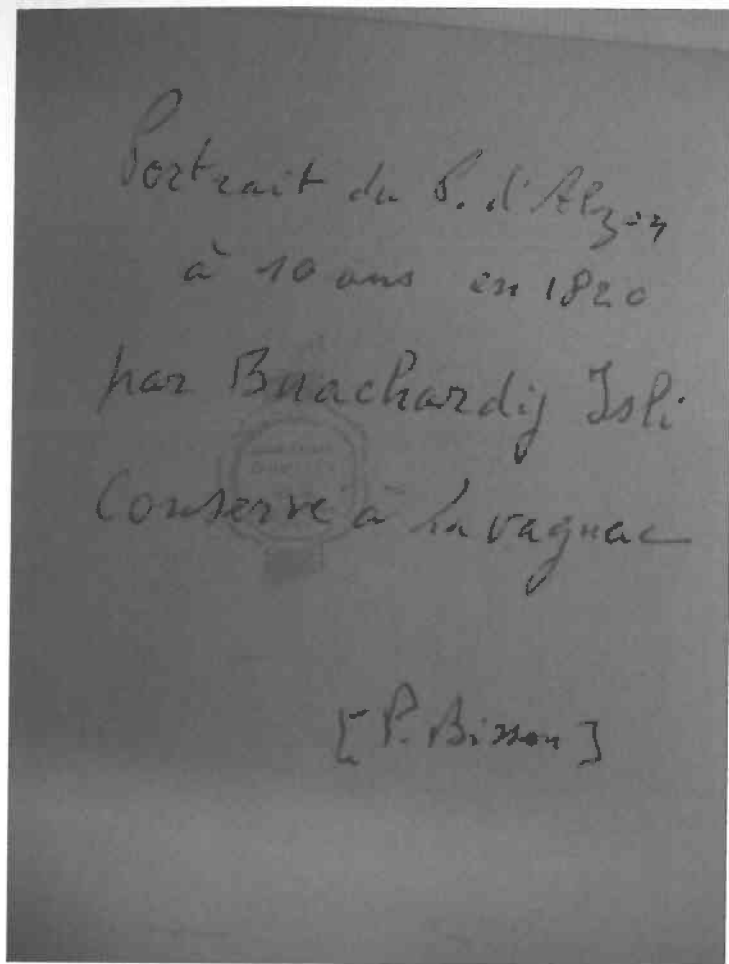 Portrait du P. d'Alzon
à 10 ans en 1820
par Buachardij Isli
Conservé à Lavagnac
[P. Bisson]